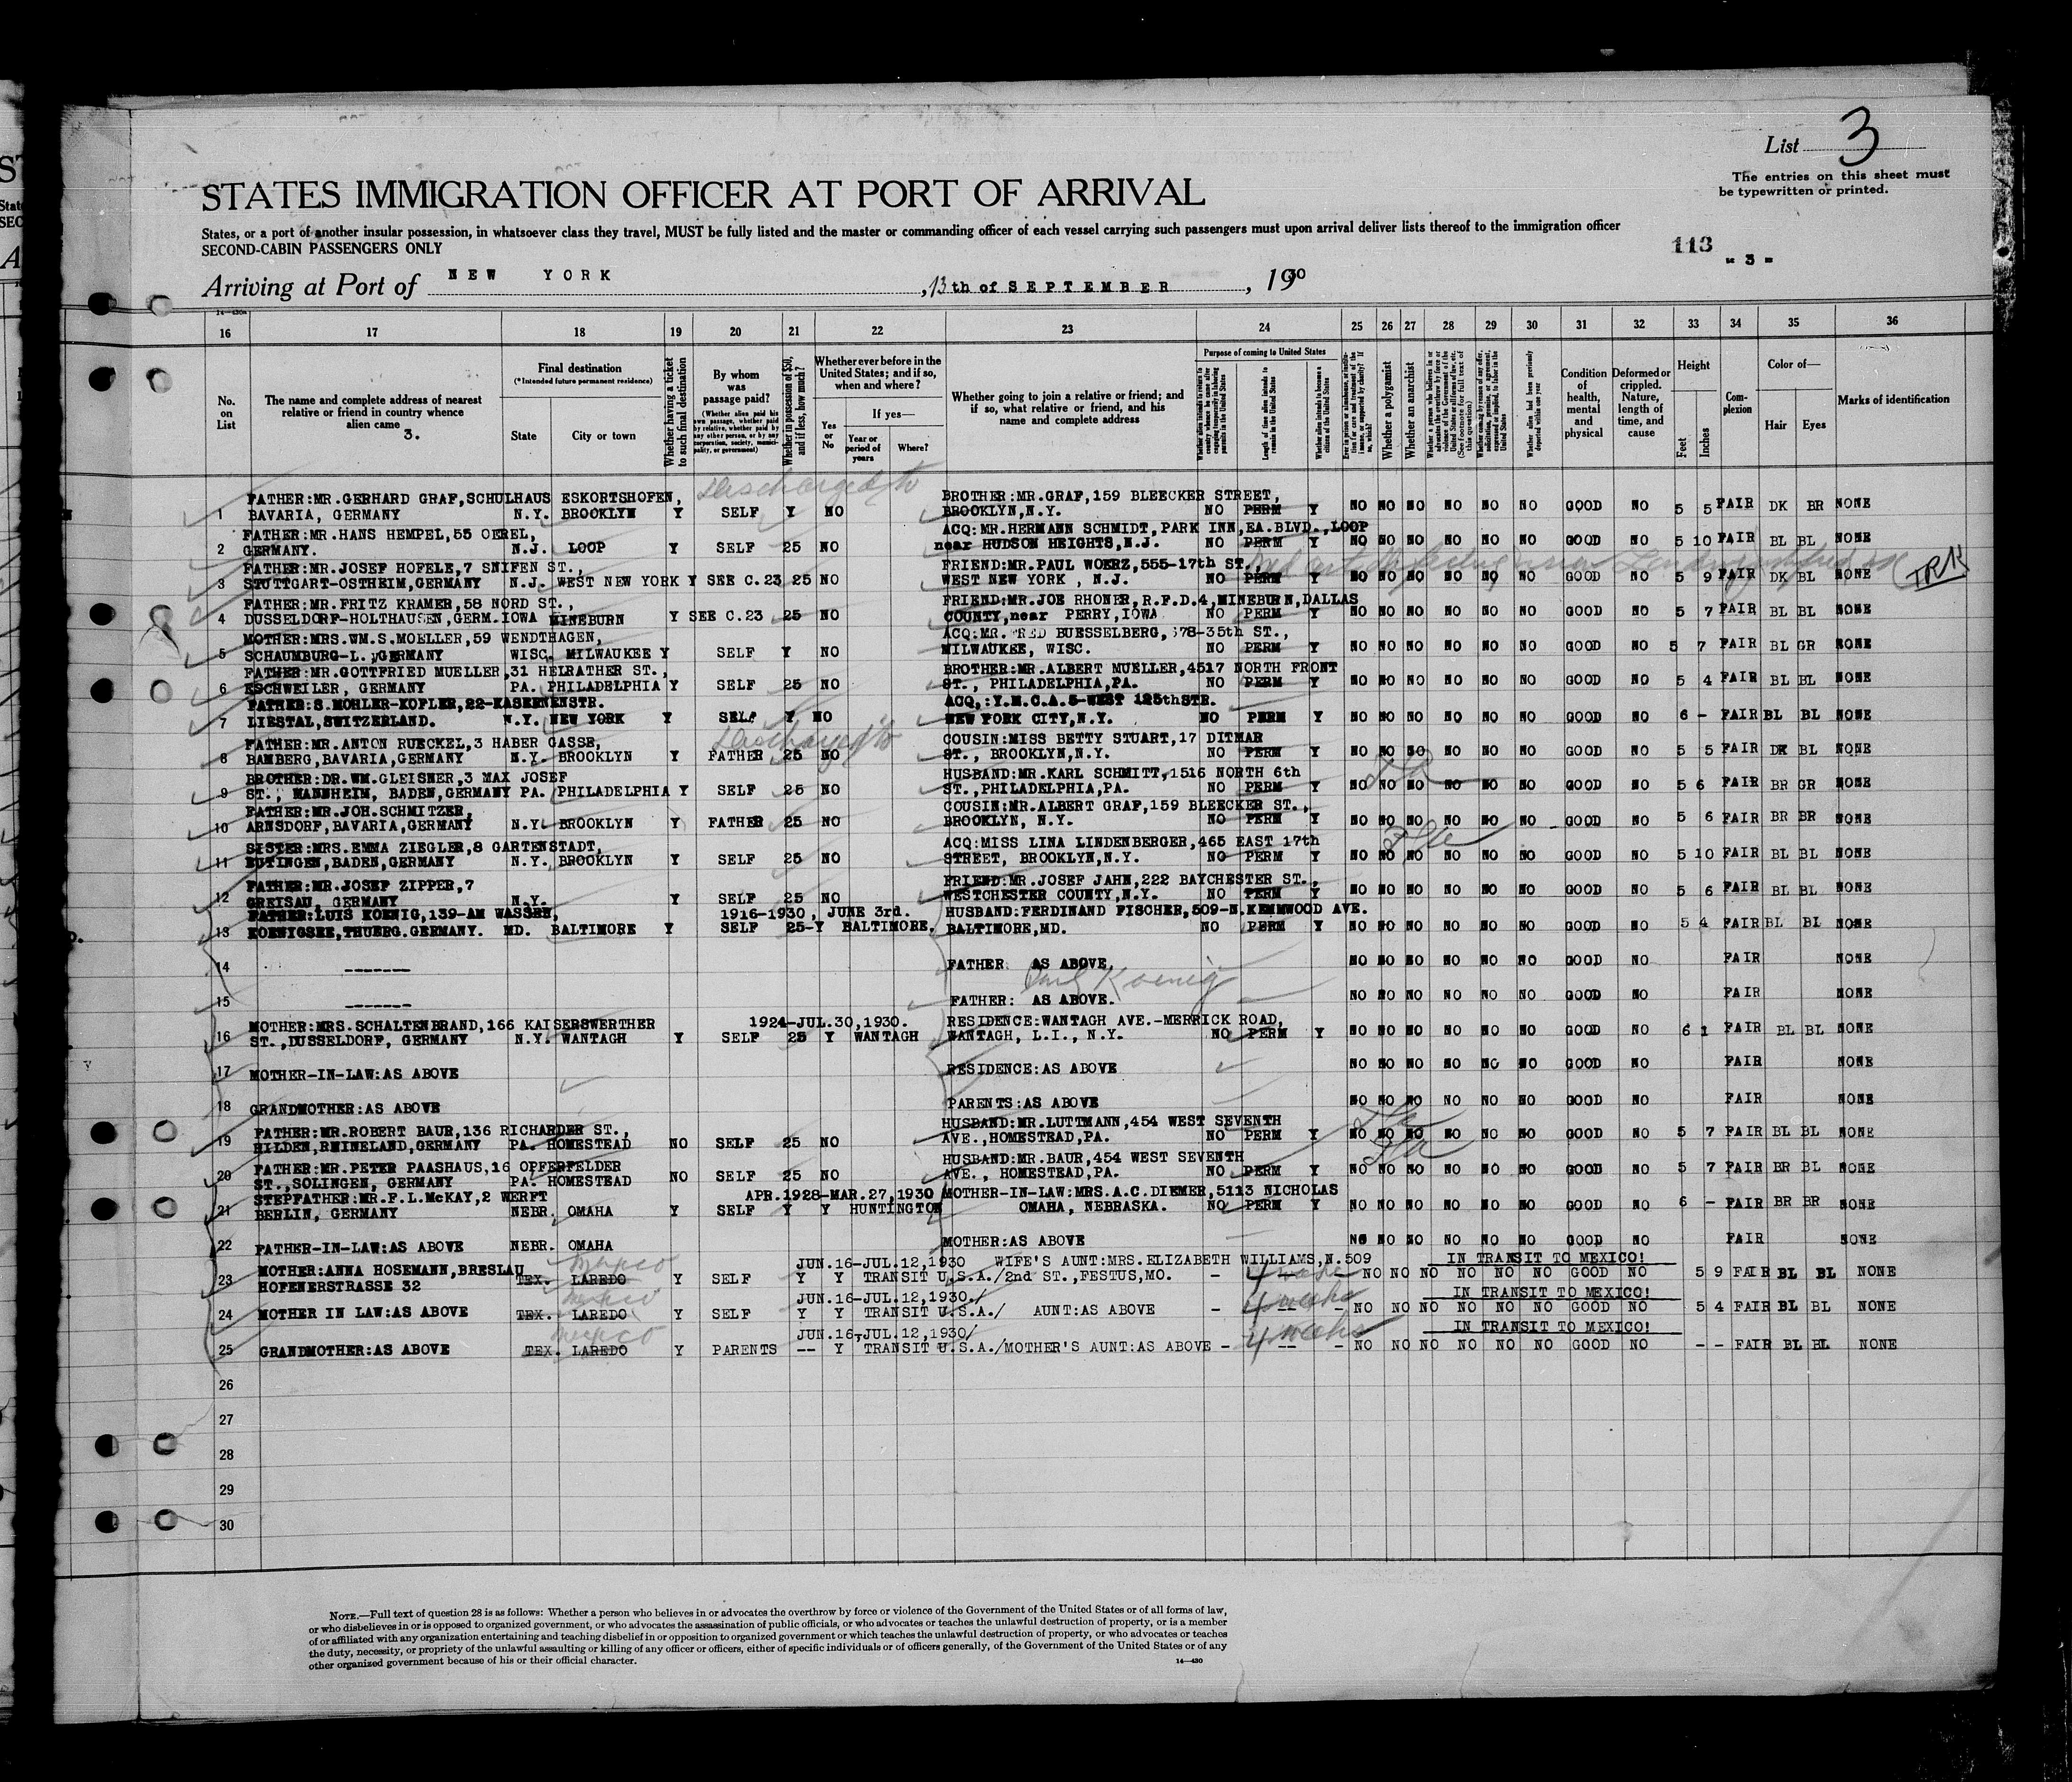 List 3
The entries on this sheet must
be typewritten or printed.
STATES IMMIGRATION OFFICER AT PORT OF ARRIVAL
States, or a port of another insular possession, in whatsoever class they travel, MUST be fully listed and the master or commanding officer of each vessel carrying such passengers must upon arrival deliver lists thereof to the immigration officer
SECOND-CABIN PASSENGERS ONLY
113
- 3 -
Arriving at Port of NEW YORK, 13th of SEPTEMBER, 1930
16 17 18 19 20 21 22 23 24 25 26 27 28 29 30 31 32 33 34 35 36
No. on List
The name and complete address of nearest relative or friend in country whence alien came
3.
Final destination
(*Intended future permanent residence)
State
City or town
Whether having a ticket to such final destination
By whom was passage paid?
(Whether alien paid his own passage, whether paid by relative, whether paid by any other person, or by any corporation, society, municipality, or government)
Whether in possession of $50, and if less, how much?
Whether ever before in the United States; and if so, when and where?
Yes or No
If yes—
Year or period of years
Where?
Whether going to join a relative or friend; and if so, what relative or friend, and his name and complete address
Purpose of coming to United States
Length of time alien intends to remain in the United States
Whether alien intends to become a citizen of the United States
Whether a polygamist
Whether an anarchist
Condition of health, mental and physical
Deformed or crippled. Nature, length of time, and cause
Height
Feet
Inches
Complexion
Color of—
Hair
Eyes
Marks of identification
Discharged to
FATHER:MR.GERHARD GRAF,SCHULHAUS ESKORTSHOFEN, BROTHER:MR.GRAF,159 BLEECKER STREET,
1 BAVARIA, GERMANY N.Y. BROOKLYN Y SELF Y NO BROOKLYN,N.Y. NO PERM Y NO NO NO NO NO NO GOOD NO 5 5 FAIR DK BR NONE
FATHER:MR.HANS HEMPEL,55 OEREL, ACQ:MR.HERMANN SCHMIDT,PARK INN,EA.BLVD.,LOOP
2 GERMANY. N.J. LOOP Y SELF 25 NO near HUDSON HEIGHTS,N.J. NO PERM Y NO NO NO NO NO NO GOOD NO 5 10 FAIR BL BL NONE
FATHER:MR.JOSEF HOFELE,7 SNIFEN ST., FRIEND:MR.PAUL WOERZ,555-17th ST.,
3 STUTTGART-OSTHEIM,GERMANY N.J. WEST NEW YORK Y SEE C.23 25 NO WEST NEW YORK , N.J. NO PERM Y NO NO NO NO NO NO GOOD NO 5 9 FAIR DK BL NONE
FATHER:MR.FRITZ KRAMER,58 NORD ST., FRIEND:MR.JOE RHONER,R.F.D.4,MINEBURN,DALLAS
4 DUSSELDORF-HOLTHAUSEN,GERM.IOWA MINEBURN Y SEE C.23 25 NO COUNTY,near PERRY,IOWA NO PERM Y NO NO NO NO NO NO GOOD NO 5 7 FAIR BL BL NONE
MOTHER:MRS.WM.S.MOELLER,59 WENDTHAGEN, ACQ:MR. FRED BUESSELBERG, 378-35th ST.,
5 SCHAUMBURG-L. GERMANY WISC. MILWAUKEE Y SELF Y NO MILWAUKEE, WISC. NO PERM Y NO NO NO NO NO NO GOOD NO 5 7 FAIR BL GR NONE
FATHER:MR.GOTTFRIED MUELLER,31 HELRATHER ST., BROTHER:MR.ALBERT MUELLER,4517 NORTH FRONT
6 ESCHWEILER, GERMANY PA. PHILADELPHIA Y SELF 25 NO ST., PHILADELPHIA,PA. NO PERM Y NO NO NO NO NO NO GOOD NO 5 4 FAIR BL BL NONE
FATHER:S.MOHLER-KOFLER,22-KASERNENSTR. ACQ,:Y.M.C.A.5-WEST 125thSTR.
7 LIESTAL,SWITZERLAND. N.Y. NEW YORK Y SELF Y NO NEW YORK CITY,N.Y. NO PERM Y NO NO NO NO NO NO GOOD NO 6 - FAIR BL BL NONE
Discharged to
FATHER:MR.ANTON RUECKEL,3 HABER GASSE, COUSIN:MISS BETTY STUART,17 DITMAR
8 BAMBERG,BAVARIA,GERMANY N.Y. BROOKLYN Y FATHER 25 NO ST., BROOKLYN,N.Y. NO PERM Y NO NO NO NO NO NO GOOD NO 5 5 FAIR DK BL NONE
BROTHER:DR.WM.GLEISNER,3 MAX JOSEF HUSBAND:MR.KARL SCHMITT,1516 NORTH 6th
9 ST., MANNHEIM, BADEN,GERMANY PA. PHILADELPHIA Y SELF 25 NO ST.,PHILADELPHIA,PA. NO PERM Y NO NO NO NO NO NO GOOD NO 5 6 FAIR BR GR NONE
FATHER:MR.JOH.SCHMITZER, COUSIN:MR.ALBERT GRAF,159 BLEECKER ST.,
10 ARNSDORF,BAVARIA,GERMANY N.Y. BROOKLYN Y FATHER 25 NO BROOKLYN, N.Y. NO PERM Y NO NO NO NO NO NO GOOD NO 5 6 FAIR BR BR NONE
SISTER:MRS.EMMA ZIEGLER,8 GARTENSTADT, ACQ:MISS LINA LINDENBERGER,465 EAST 17th
11 EUTINGEN,BADEN,GERMANY N.Y. BROOKLYN Y SELF 25 NO STREET, BROOKLYN,N.Y. NO PERM Y NO NO NO NO NO NO GOOD NO 5 10 FAIR BL BL NONE
FATHER:MR.JOSEF ZIPPER,7 FRIEND:MR.JOSEF JAHN,222 BAYCHESTER ST.,
12 GREISAU, GERMANY N.Y. Y SELF 25 NO WESTCHESTER COUNTY,N.Y. NO PERM Y NO NO NO NO NO NO GOOD NO 5 6 FAIR BL BL NONE
FATHER:LUIS KOENIG,139-AM WASSEN, 1916-1930, JUNE 3rd. HUSBAND:FERDINAND FISCHER,509-N.KENWOOD AVE.
13 KOENIGSEE,THUERG.GERMANY. MD. BALTIMORE Y SELF 25-Y BALTIMORE. BALTIMORE,MD. NO PERM Y NO NO NO NO NO NO GOOD NO 5 4 FAIR BL BL NONE
14 ------- FATHER AS ABOVE, NO NO NO NO NO NO GOOD NO FAIR NONE
Koenig
15 ------- FATHER: AS ABOVE. NO NO NO NO NO NO GOOD NO FAIR NONE
MOTHER:MRS.SCHALTENBRAND,166 KAISERSWERTHER 1924-JUL.30,1930. RESIDENCE:WANTAGH AVE.-MERRICK ROAD,
16 ST.,DUSSELDORF, GERMANY N.Y. WANTAGH Y SELF 25 Y WANTAGH WANTAGH, L.I., N.Y. NO PERM Y NO NO NO NO NO NO GOOD NO 6 1 FAIR BL BL NONE
17 MOTHER-IN-LAW:AS ABOVE RESIDENCE:AS ABOVE NO NO NO NO NO NO GOOD NO FAIR NONE
18 GRANDMOTHER:AS ABOVE PARENTS:AS ABOVE NO NO NO NO NO NO GOOD NO FAIR NONE
FATHER:MR.ROBERT BAUR,136 RICHARDER ST., HUSBAND:MR.LUTTMANN,454 WEST SEVENTH
19 HILDEN,RHINELAND,GERMANY PA. HOMESTEAD NO SELF 25 NO AVE.,HOMESTEAD,PA. NO PERM Y NO NO NO NO NO NO GOOD NO 5 7 FAIR BL BL NONE
FATHER:MR.PETER PAASHAUS,16 OPFERFELDER HUSBAND:MR.BAUR,454 WEST SEVENTH
20 ST.,SOLINGEN, GERMANY PA. HOMESTEAD NO SELF 25 NO AVE., HOMESTEAD,PA. NO PERM Y NO NO NO NO NO NO GOOD NO 5 7 FAIR BR BL NONE
STEPFATHER:MR.F.L.McKAY,2 WERFT APR.1928-MAR.27,1930 MOTHER-IN-LAW:MRS.A.C.DIEMER,5113 NICHOLAS
21 BERLIN, GERMANY NEBR. OMAHA Y SELF Y Y HUNTINGTON OMAHA, NEBRASKA. NO PERM Y NO NO NO NO NO NO GOOD NO 6 - FAIR BR BR NONE
22 FATHER-IN-LAW:AS ABOVE NEBR. OMAHA MOTHER:AS ABOVE NO NO NO NO NO NO GOOD NO FAIR NONE
MOTHER:ANNA HOSEMANN,BRESLAU Mexico JUN.16-JUL.12,1930 WIFE'S AUNT:MRS.ELIZABETH WILLIAMS,N.509 IN TRANSIT TO MEXICO!
23 HOFENERSTRASSE 32 TEX. LAREDO Y SELF Y Y TRANSIT U.S.A./2nd ST.,FESTUS,MO. - 4 weeks - NO NO NO NO NO NO GOOD NO 5 9 FAIR BL BL NONE
Mexico JUN.16-JUL.12,1930./ IN TRANSIT TO MEXICO!
24 MOTHER IN LAW:AS ABOVE TEX. LAREDO Y SELF Y Y TRANSIT U.S.A./ AUNT:AS ABOVE - 4 weeks - NO NO NO NO NO NO GOOD NO 5 4 FAIR BL BL NONE
Mexico JUN.16-JUL.12,1930/ IN TRANSIT TO MEXICO!
25 GRANDMOTHER:AS ABOVE TEX. LAREDO Y PARENTS -- Y TRANSIT U.S.A./MOTHER'S AUNT:AS ABOVE - 4 weeks - NO NO NO NO NO NO GOOD NO - - FAIR BL BL NONE
26
27
28
29
30
NOTE.—Full text of question 28 is as follows: Whether a person who believes in or advocates the overthrow by force or violence of the Government of the United States or of all forms of law,
or who disbelieves in or is opposed to organized government, or who advocates the assassination of public officials, or who advocates or teaches the unlawful destruction of property, or is a member
of or affiliated with any organization entertaining and teaching disbelief in or opposition to organized government or which teaches the unlawful destruction of property, or who advocates or teaches
the duty, necessity, or propriety of the unlawful assaulting or killing of any officer or officers, either of specific individuals or of officers generally, of the Government of the United States or of any
other organized government because of his or their official character.
14—430